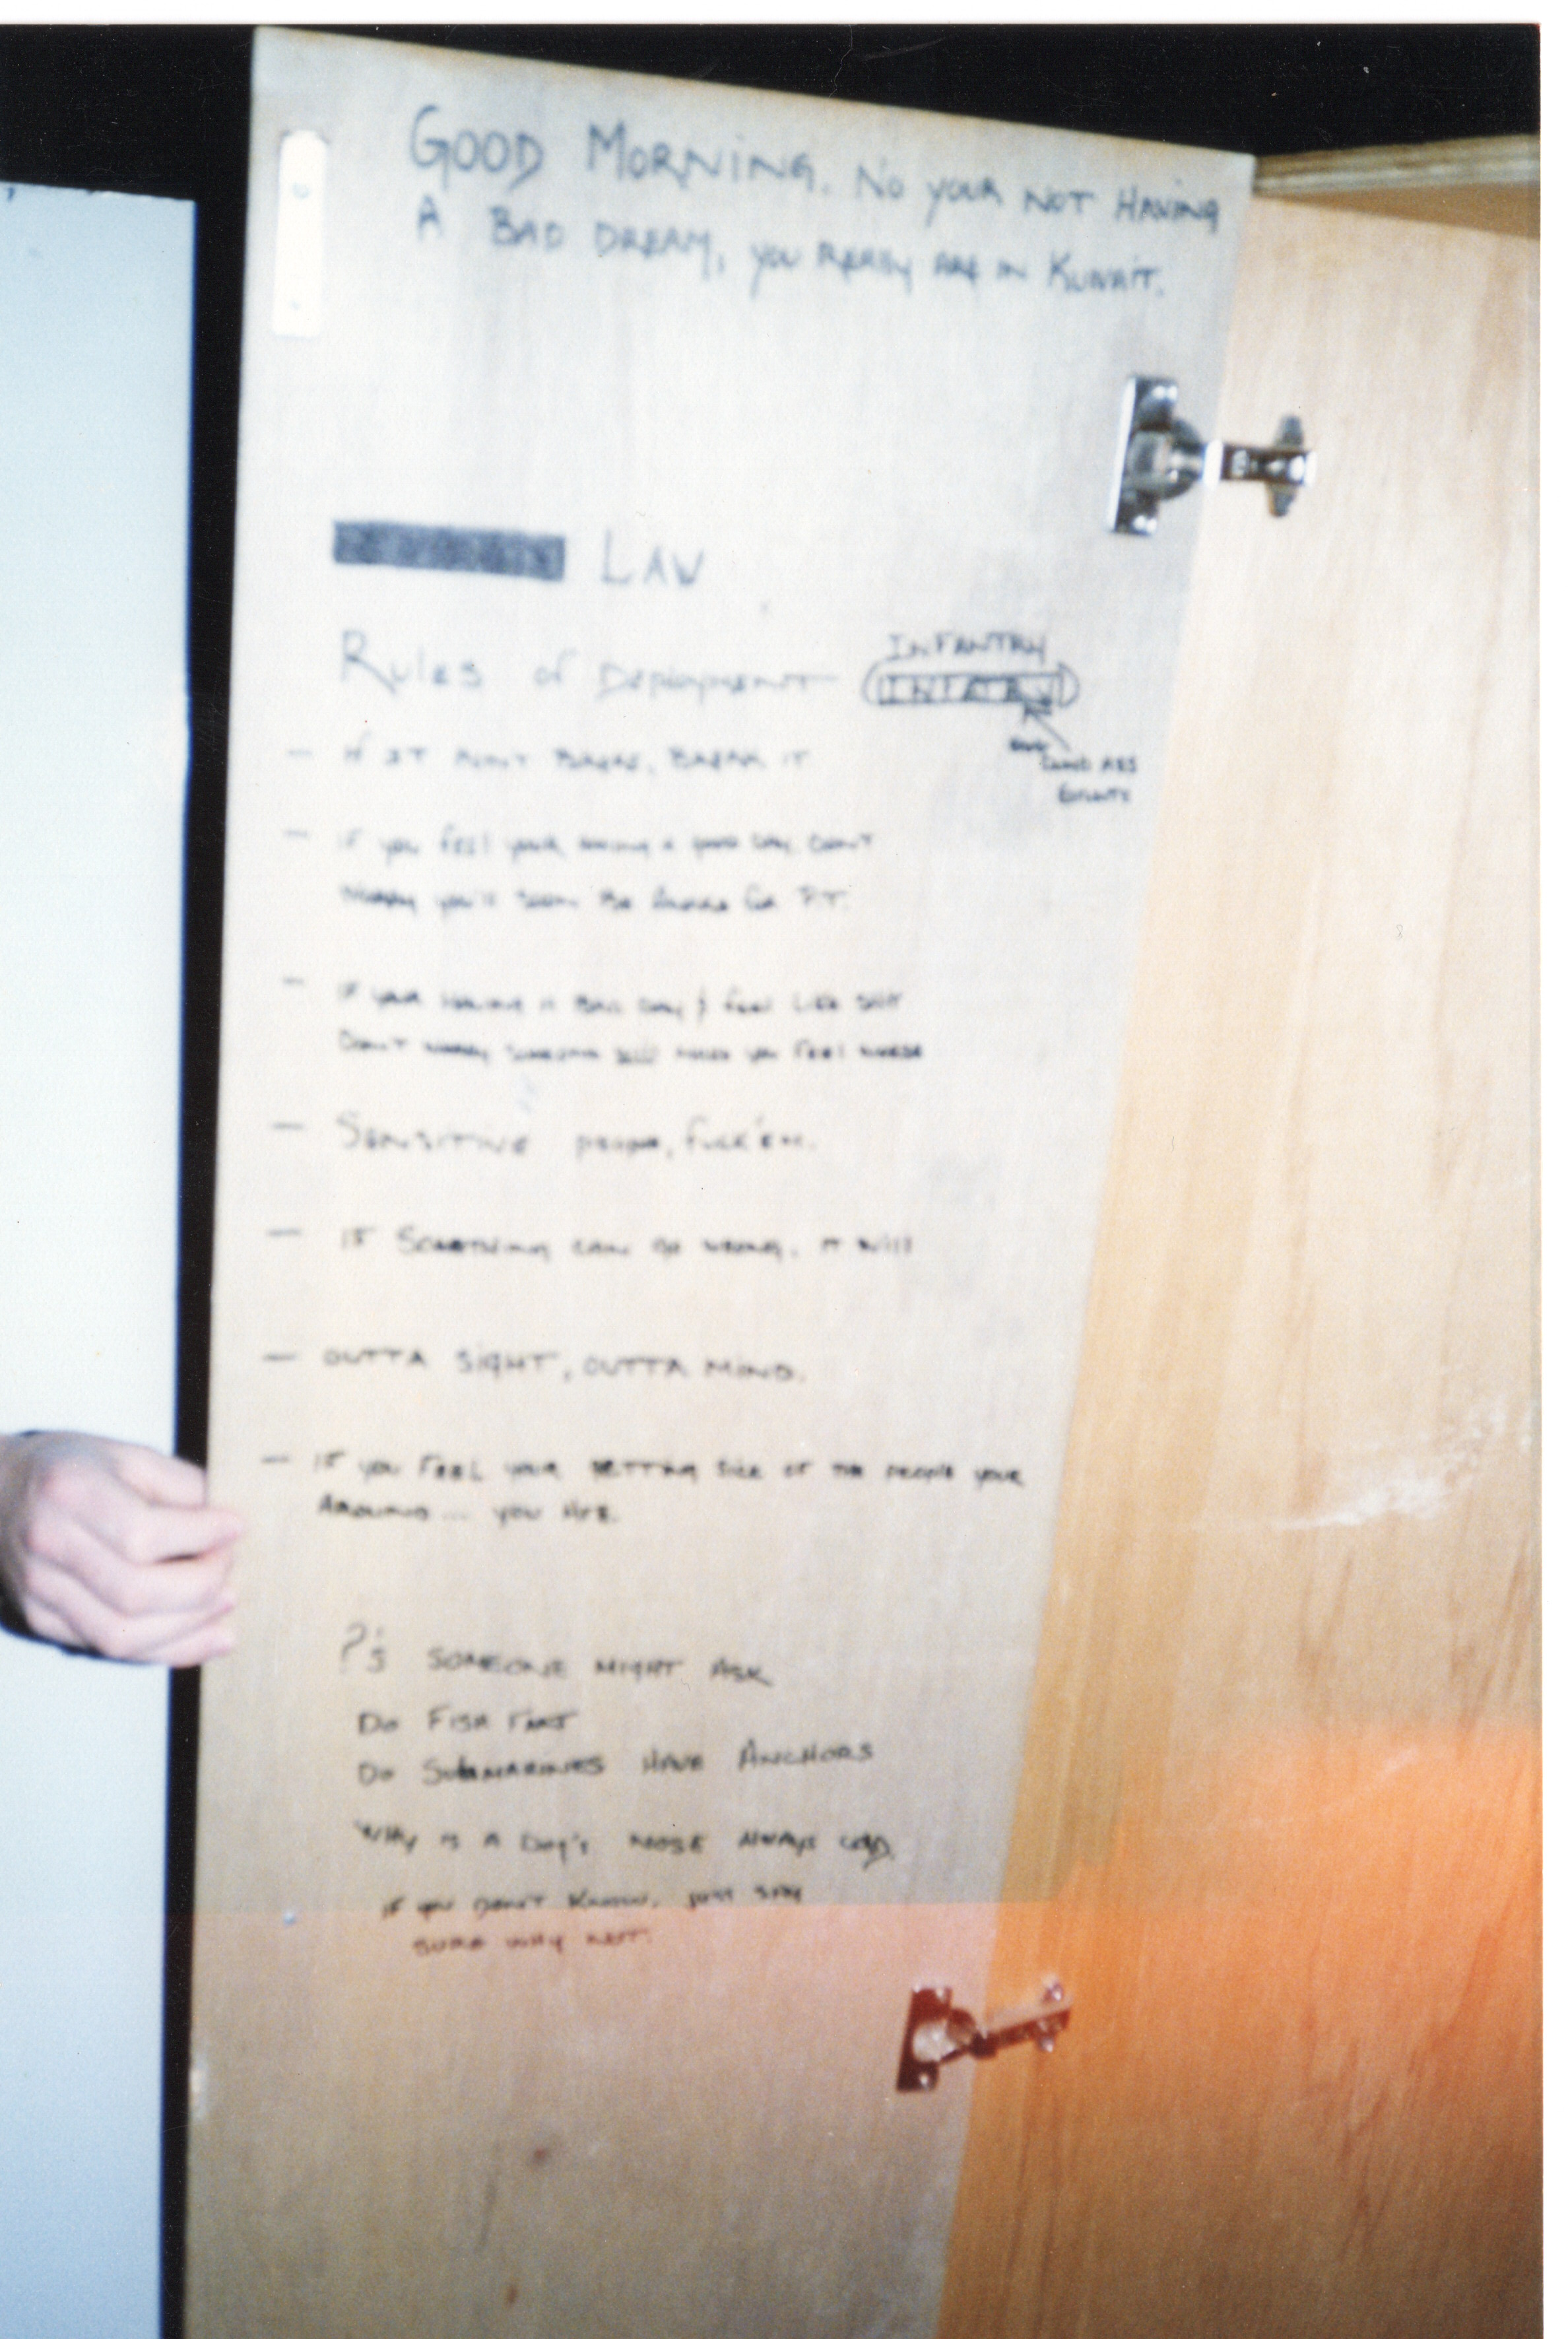 GOOD MORNING. NO YOUR NOT HAVING
A BAD DREAM, YOU REALLY ARE IN KUWAIT.
LAW
RULES OF DEPLOYMENT
INFANTRY
- IF IT AIN'T BROKE, BREAK IT
DUMB ASS
- IF YOU FEEL YOUR HAVING A GOOD DAY, DON'T
WORRY YOU'LL SOON BE AWAKE FOR P.T.
- IF YOUR HAVING A BAD DAY & FEEL LIKE SHIT
DON'T WORRY SOMEONE WILL MAKE YOU FEEL WORSE
- SENSITIVE PEOPLE, FUCK'EM.
- IF SOMETHING CAN GO WRONG, IT WILL
- OUTTA SIGHT, OUTTA MIND.
- IF YOU FEEL YOUR GETTING SICK OF THE PEOPLE YOUR
AROUND... YOU ARE.
?'s SOMEONE MIGHT ASK
DO FISH FART
DO SUBMARINES HAVE ANCHORS
WHY IS A DOG'S NOSE ALWAYS COLD.
IF YOU DON'T KNOW, JUST SAY
SURE WHY NOT.